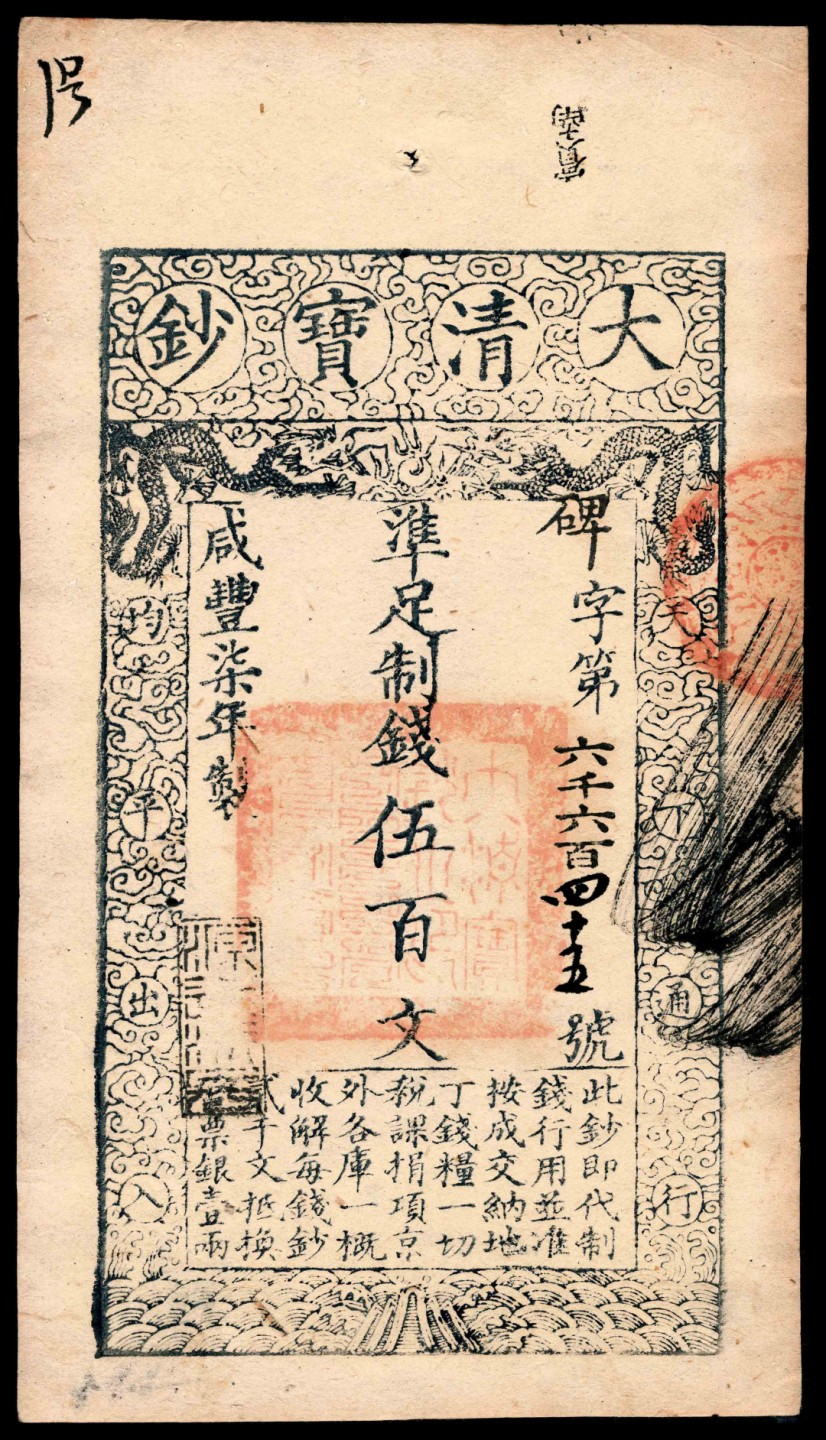 大清寶鈔
碑字第六千六百四十五號
準足制錢伍百文
咸豐柒年製
天下通行
均平出入
此鈔即代制
錢行用並准
按成交納地
丁錢糧一切
稅課捐項京
外各庫一概
收解每錢鈔
貳千文抵換
票銀壹兩